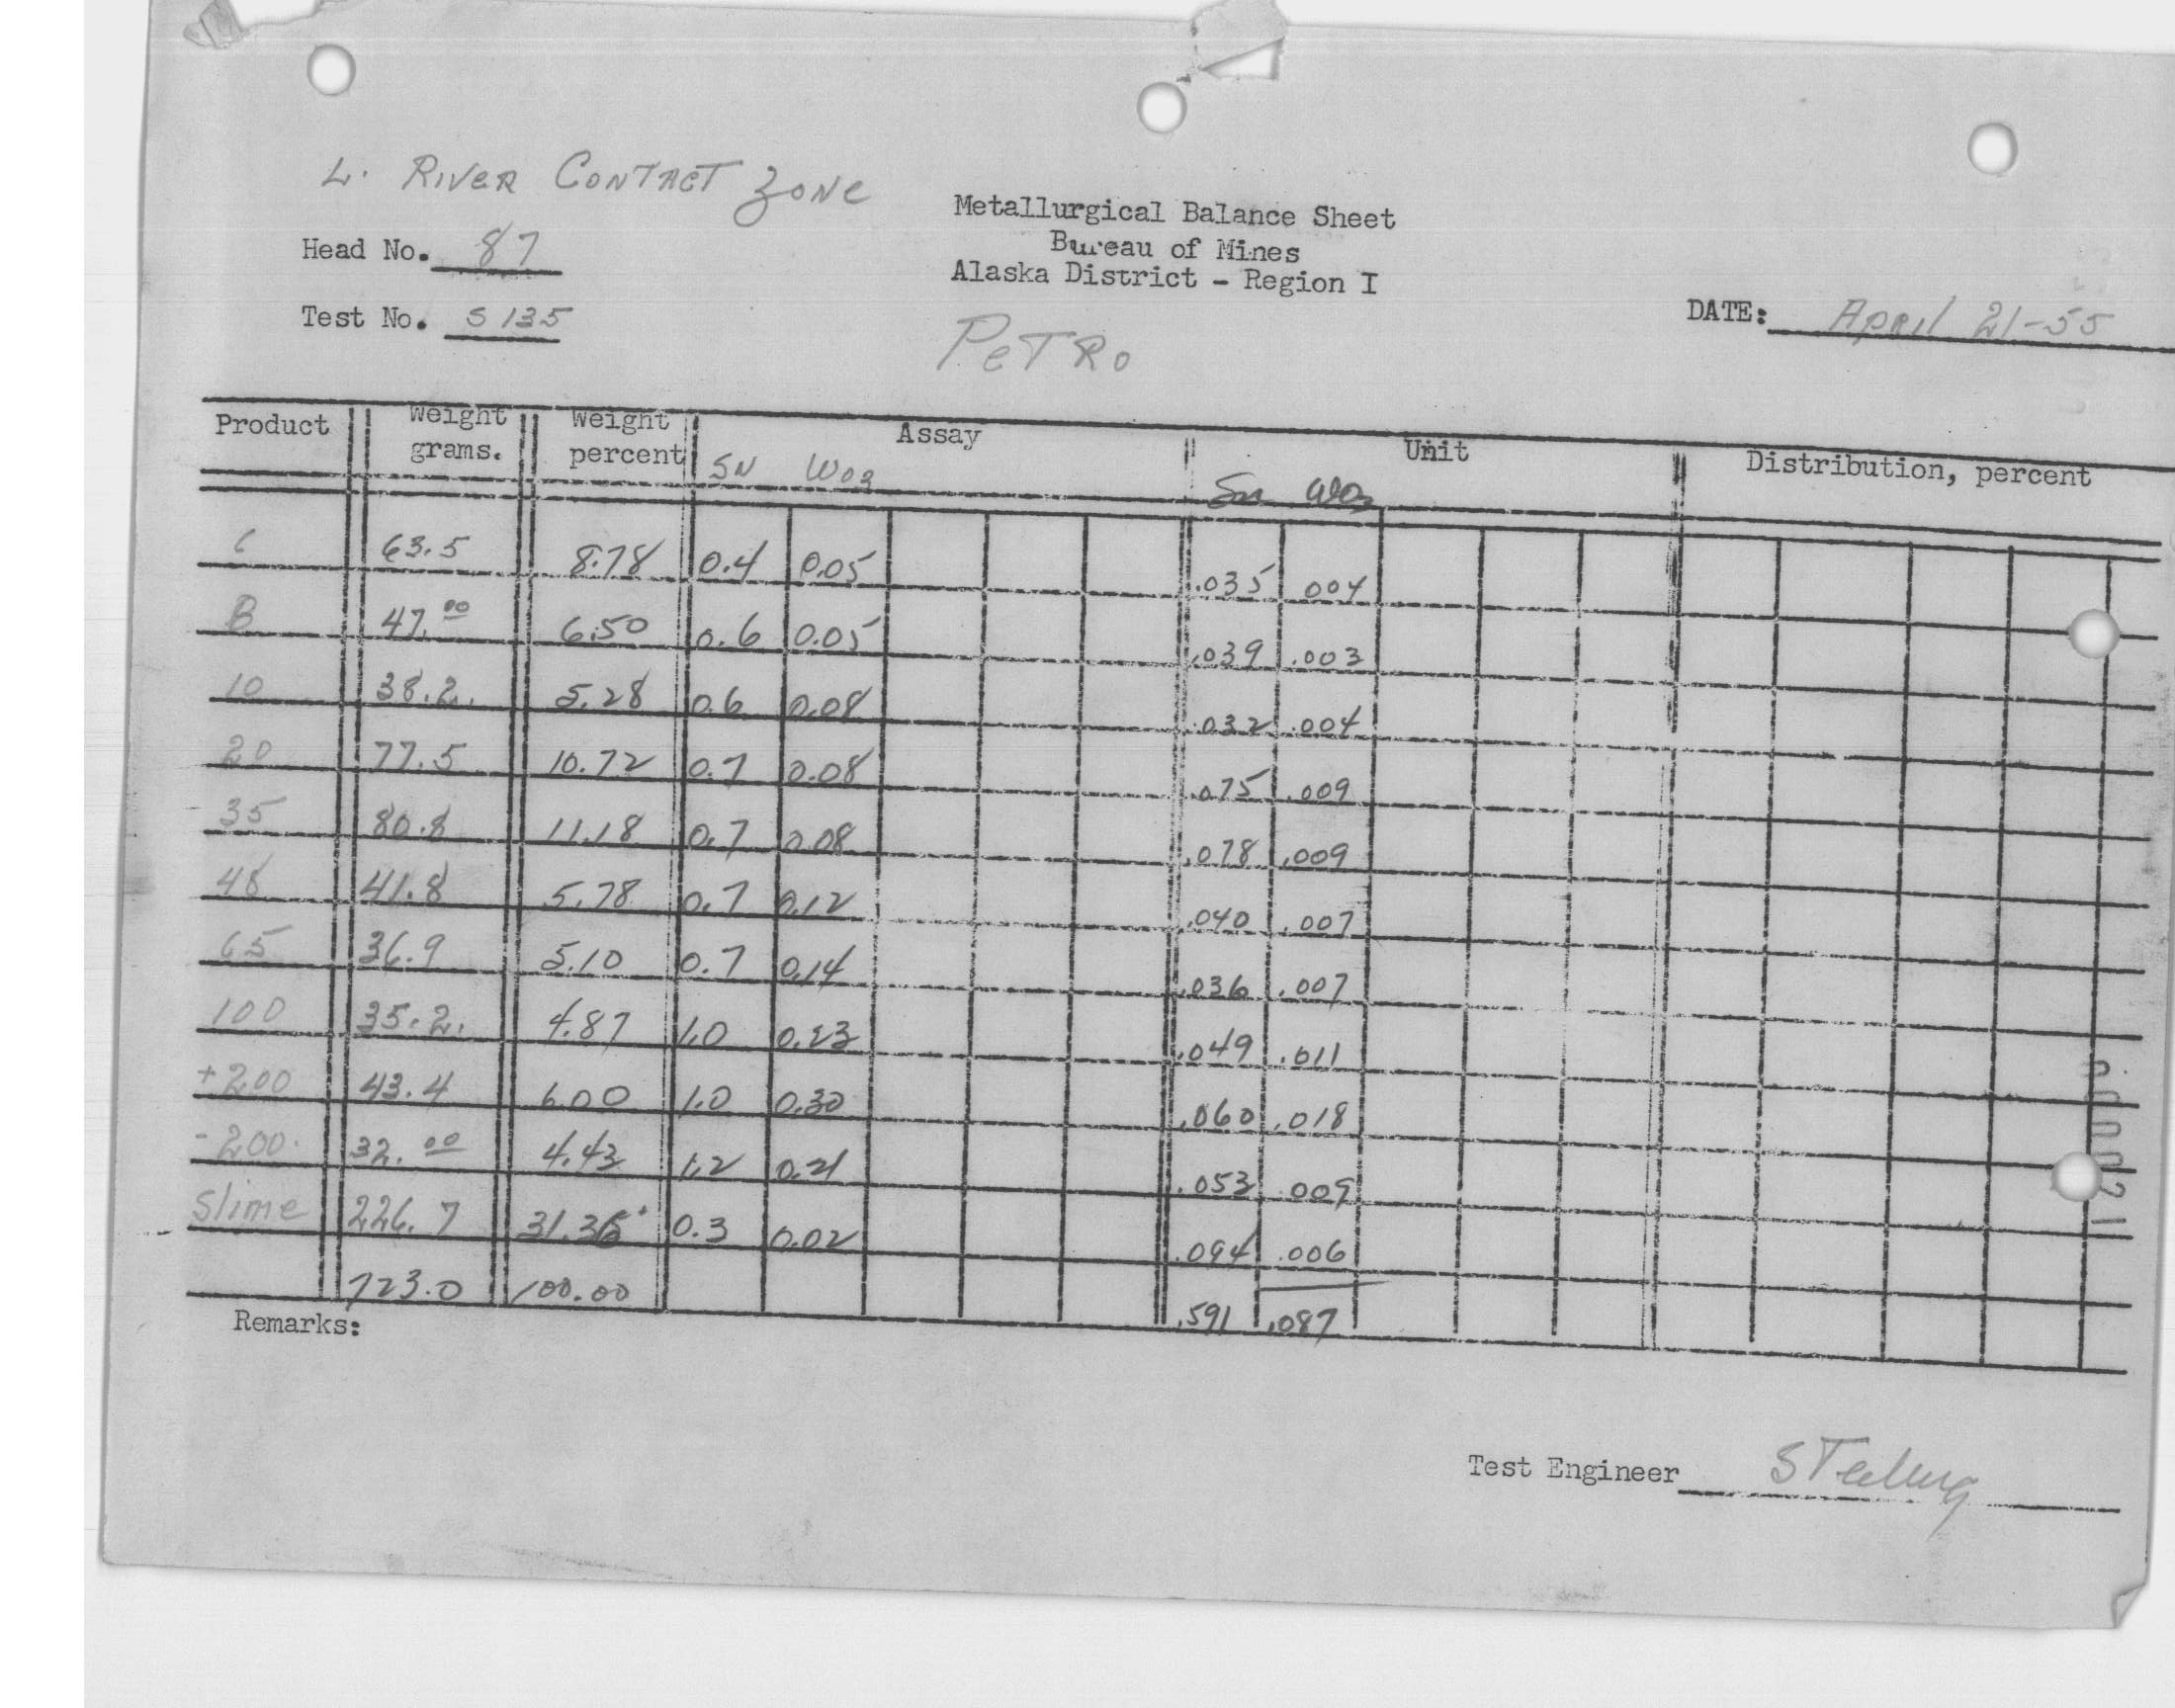 L. RIVER CONTACT ZONE
Metallurgical Balance Sheet
Bureau of Mines
Alaska District - Region I
Head No. 87
Test No. S 135
PETRO
DATE: April 21-55
Product Weight grams. Weight percent Assay Unit Distribution, percent
SN WO3 Sn WO3
6 63.5 8.78 0.4 0.05 .035 .004
8 47.00 6.50 0.6 0.05 .039 .003
10 38.2. 5.28 0.6 0.08 .032 .004
20 77.5 10.72 0.7 0.08 .075 .009
35 80.8 11.18 0.7 0.08 .078 .009
48 41.8 5.78 0.7 0.12 .040 .007
65 36.9 5.10 0.7 0.14 .036 .007
100 35.2. 4.87 1.0 0.23 .049 .011
+200 43.4 6.00 1.0 0.30 .060 .018
-200. 32.00 4.43 1.2 0.21 .053 .009
Slime 226.7 0.3 0.02 .094 .006
723.0 100.00 .591 .087
Remarks:
Test Engineer